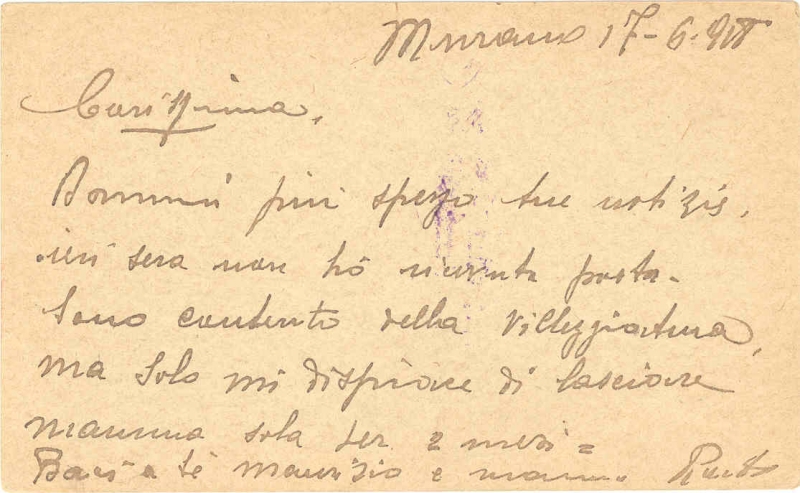 Murano 17-6-
Carissima,
più spesso tue notizie,
ieri sera non hò ricevuto posta-
Sono contento della villeggiatura,
ma solo mi dispiace di lasciare
mamma sola per 2 mesi=
Baci a te Maurizio e